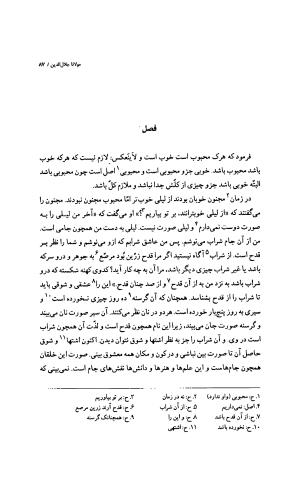 مولانا جلال‌الدین / ۸۷
فصل
فرمود که هرک محبوب است خوب است و لاینعکس: لازم نیست که هرکه خوب
باشد محبوب باشد. خوبی جزو محبوبی است و محبوبی۱ اصل است چون محبوبی باشد
البتّه خوبی باشد جزو چیزی از کلّش جدا نباشد و ملازم کلّ باشد.
در زمان۲ مجنون خوبان بودند از لیلی خوب‌تر امّا محبوب مجنون نبودند. مجنون را
می‌گفتند که «از لیلی خوبترانند، بر تو بیاریم۳؟» او می‌گفت که «آخر من لیلی را به
صورت دوست نمی‌دارم۴ و لیلی صورت نیست. لیلی به دست من همچون جامی است.
من از آن جام شراب می‌نوشم. پس من عاشق شرابم که ازو می‌نوشم و شما را نظر بر
قدح است. از شراب۵ آگاه نیستید اگر مرا قدح زرّین بُود مرصّع۶ به جوهر و درو سرکه
باشد یا غیر شراب چیزی دیگر باشد، مرا آن به چه کار آید؟ کدوی کهنه شکسته که درو
شراب باشد به نزد من به از آن قدح۷ و از صد چنان قدح» این را۸ عشقی و شوقی باید
تا شراب را از قدح بشناسد. همچنان که آن گرسنه۹ ده روز چیزی نخورده است۱۰ و
سیری به روز پنج‌بار خورده است. هر دو در نان نظر می‌کنند. آن سیر صورت نان می‌بیند
و گرسنه صورت جان می‌بیند، زیرا این نام همچون قدح است و لذّت آن همچون شراب
است در وی. و آن شراب را جز به نظر اشتها و شوق نتوان دیدن. اکنون اشتها۱۱ و شوق
حاصل آن تا صورت‌بین نباشی و در کون و مکان همه معشوق بینی. صورت این خلقان
همچون جام‌هاست و این علم‌ها و هنرها و دانش‌ها نقش‌های جام است. نمی‌بینی که
۱. ح: محبوبی (واو ندارد) ۲. ح: نه در زمان ۳. ح: بر تو بیاوریم
۴. اصل: نمی‌داریم ۵. ح: از آن شراب ۶. ح: قدح آرند زرین مرصع
۷. ح: از آن قدح باشد ۸. ح: و این را ۹. ح: همچنانک گرسنه
۱۰. ح: نخورده باشد ۱۱. ح: اشتهی